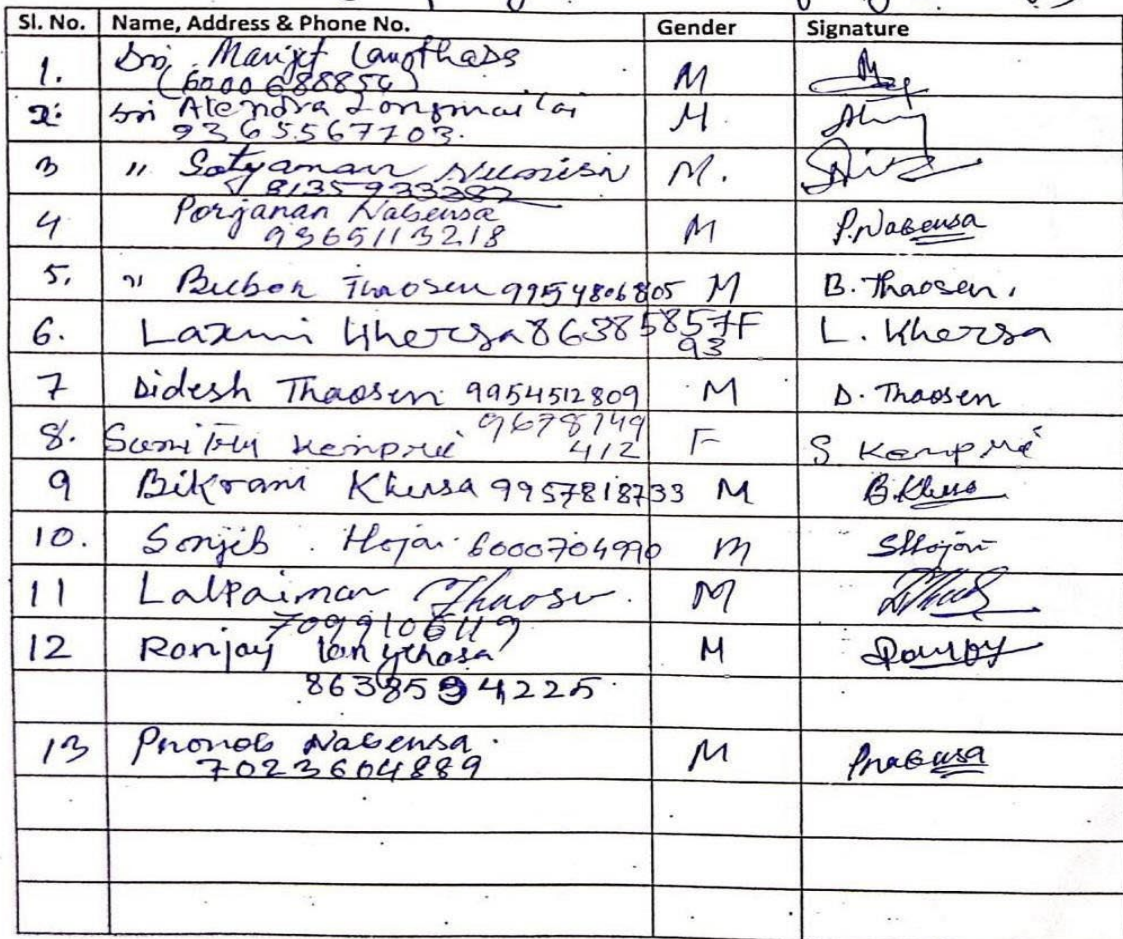 Sl. No. Name, Address & Phone No. Gender Signature
1. Sri Manjet Langthasa M
(6000688854)
2. Sri Atendra Longmailai M.
9365567703.
3 " Satyaman Nunisa M.
8135933382
4 Porjanan Nabensa M P. Nabensa
9365113218
5. " Bubon Thaosen 9954806805 M B. Thaosen.
6. Laxmi Khersa 86385857 F L. Khersa
93
7 Didesh Thaosen 9954512809 M D. Thaosen
8. Kemprai 9678749 F S Kemprai
412
9 Bikram Khersa 9957818733 M B. Khersa
10. Sonjib Hojai 6000704990 M SHojai
11 Lalpaiman Thaosen. M
12 Ronjay Langthasa M
8638594225
13 Pronob Nabensa. M
7023604889